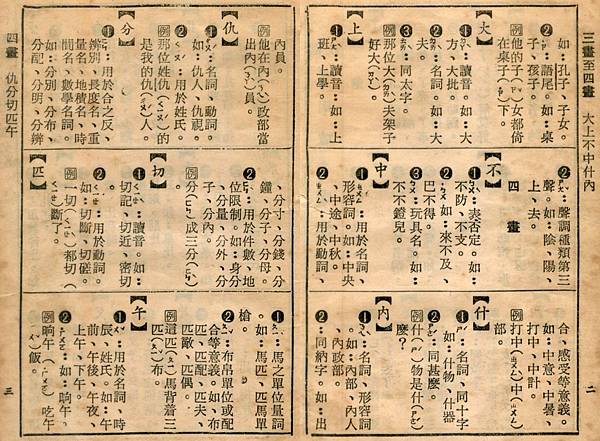 三畫至四畫　大上不中什內
如：孔子、子女。
❷：語尾。如：桌
子、孩子。
例他的子（）女都倚
在桌子（）下。
【大】
❶：讀音。如：大
方、大批。
❷：名詞。如：大
夫。
❸：同太字。
例那位大（）夫架子
好大（）。
【上】
❶：讀音。如：上
班、上學。
❷：聲調種類第三
聲。如：陰、陽、
上、去。
四畫
【不】
❶：表否定。如：
不防、不支。
❷：如：來不及、
巴不得。
❸：玩具名。如：
不不鐙兒。
【中】
❶：用於名詞、
形容詞。如：中央
、中途、中秋。
❷：用於動詞、
合、感受等意義。
如：中意、中暑、
打中、中計。
例打中（）中（）
部。
【什】
❶：名詞、同十字
。如：什物、什器
❷：同甚麼。
例什（）物是什（）
麼？
【內】
❶：名詞、形容詞
。如：內部、內人
、內政部。
❷：同納字。如：出
二
四畫　仇分切匹午
內員。
例他在內（）政部當
出內（）員。
【仇】
❶：名詞、動詞。
如：仇人、仇視。
❷：用於姓氏。
例那位姓仇（）的
是我的仇（）人。
【分】
❶：用於合之反、
辨別、長度名、重
量名、地積名、時
間名、數學名詞。
如：分別、分布、
分配、分明、分辨
、分寸、分錢、分
鐘、分子、分母。
❷：用於件數、地
位限制。如：身分
、分量、分外、分
子、分內。
例分（）成三分（）
【切】
❶：讀音。如：
切記、切近、密切
❷：用於動詞。
如：切斷、切磋。
例一切（）都切（）
斷了。
【匹】
❶：馬之單位量詞
。如：馬匹、匹馬單
槍。
❷：布帛單位或配
合等意義。如：布
匹、匹配、匹夫、
匹敵、匹偶。
例這匹（）馬背着三
匹（）布。
【午】
❶：用於名詞、時
辰、姓氏。如：午
前、午後、午夜、
上午、下午。
❷：如：晌午。
例晌午（）吃午
（）飯。
三